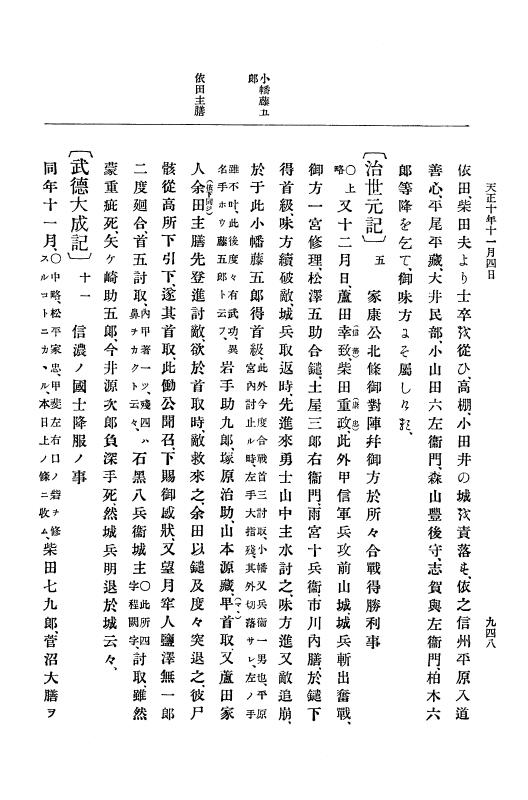 天正十年十一月四日
九四八
小幡藤五郎
依田主膳
依田、柴田夫より士卒を從ひ高棚、小田井の城を責落も、依之信州平原入道
善心、平尾平藏、大井民部、小山田六左衞門、森山豐後守、志賀與左衞門、柏木六
郎等降を乞て、御味方にそ屬しける、
〔治世元記〕 五 家康公北條御對陣幷御方於所々合戰得勝利事
○上略 又十二月日、蘆田幸致、柴田重政、此外甲信軍兵攻前山城、城兵斬出奮戰、
御方一宮修理松澤五助合鑓、土屋三郎右衞門、雨宮十兵衞市川內膳於鑓下
得首級、味方續破敵、城兵取返時、先進來勇士山中主水討之、味方進又敵追崩、
於于此小幡藤五郎得首級、此外今度合戰首三討取、小幡又兵衞一男也、平原宮內討止ル時、左手大指殘、其外切落サレ、左ノ手
雖不叶、此後度々有武功、異名手ホウ藤五郎ト云フ、岩手助九郎、塚原治助、山本源藏、早首取、又蘆田家
人余田主膳先登進討敵、欲於首取時、敵救來之、余田以鑓及度々突退之、彼尸
骸從高所下引下、遂其首取、此働公聞召下賜御感狀、又望月牢人鹽澤無一郎
二度廻合、首五討取、內甲著一ツ、殘四ハ鼻ヲチカクト云々、石黑八兵衞城主○此所四字程闕字、討取、雖然
蒙重疵死、矢ケ崎助五郎、今井源次郎負深手死、然城兵明退於城云々、
〔武德大成記〕 十一 信濃ノ國士降服ノ事
同年十一月、○中略、松平家忠、甲斐左右口ノ砦ヲ修スルコトニカヽル、本日上ノ條ニ收ム、柴田七九郎、菅沼大膳ヲ